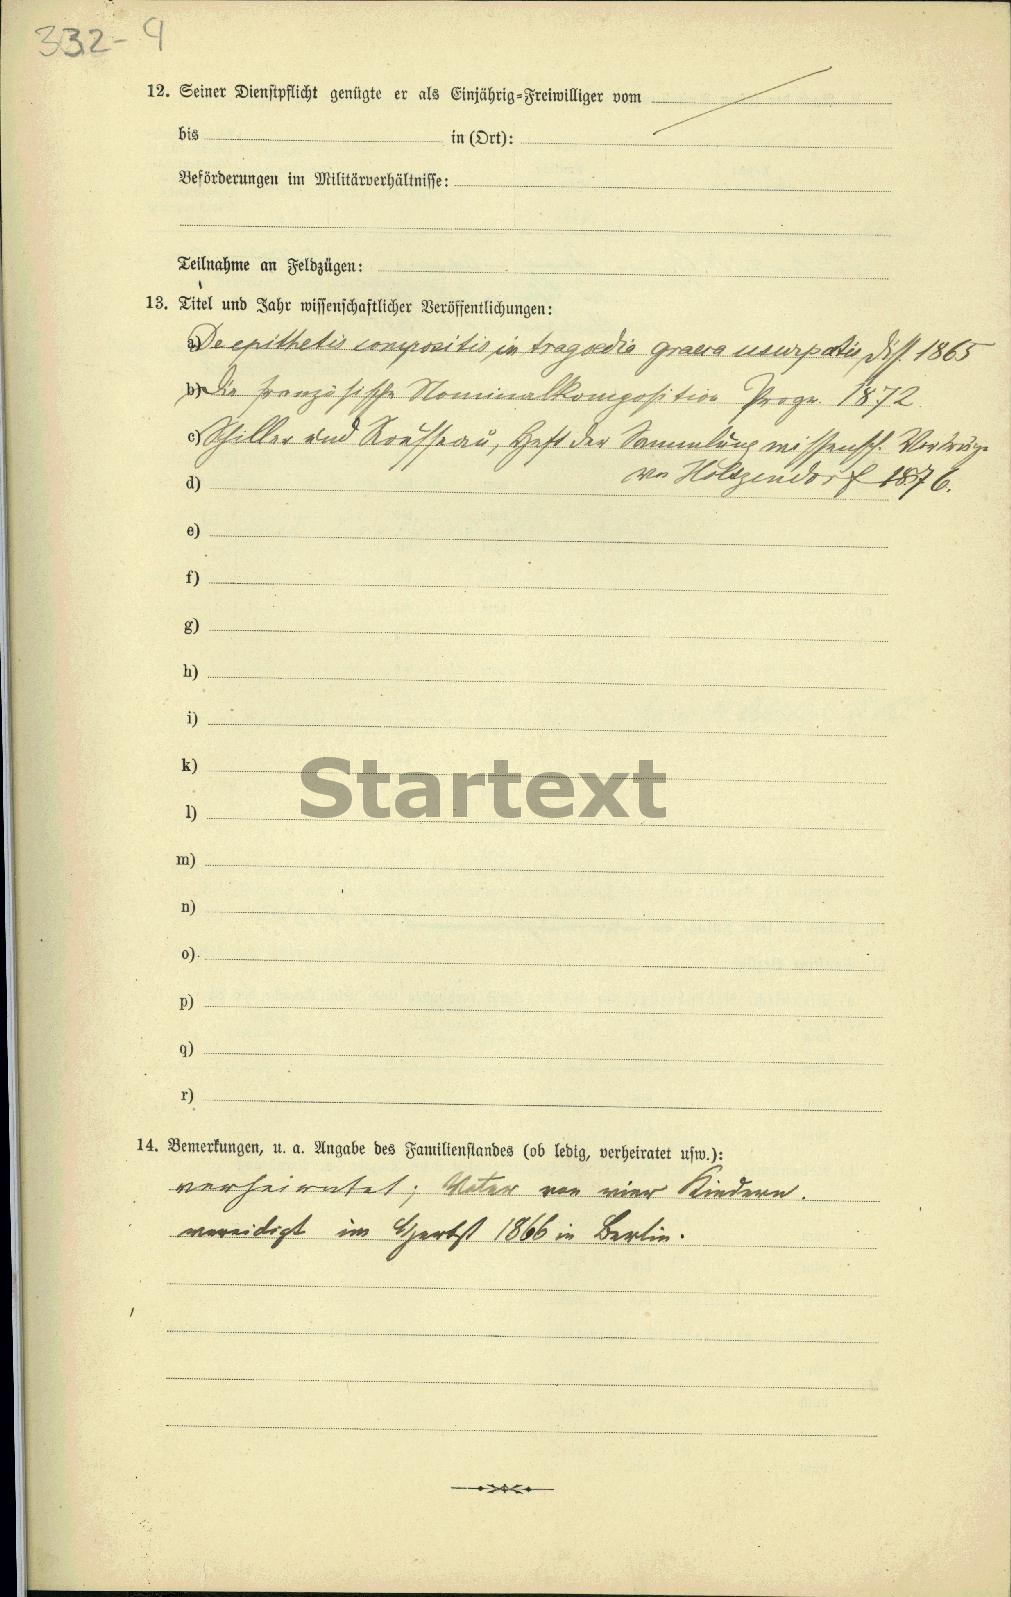 332-9
12. Seiner Dienstpflicht genügte er als Einjährig-Freiwilliger vom
bis in (Ort):
Beförderungen im Militärverhältnisse:
Teilnahme an Feldzügen:
13. Titel und Jahr wissenschaftlicher Veröffentlichungen:
a) De epithetis compositis in tragœdia graeca usurpatis, Diss. 1865
b) Die französische Nominalkomposition Progr. 1872
c) Schiller und Rousseau, Heft der Sammlung wissensch. Vorträge
von Holtzendorf 1876.
d)
e)
f)
g)
h)
i)
k)
Startext
l)
m)
n)
o)
p)
q)
r)
14. Bemerkungen, u. a. Angabe des Familienstandes (ob ledig, verheiratet usw.):
verheiratet; Vater von vier Kindern.
vereidigt im Herbst 1866 in Berlin.